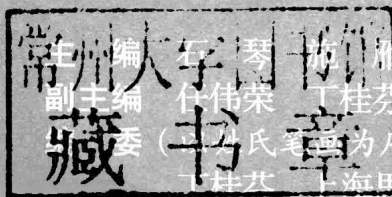 常州大学图书馆
藏书章
主 编 石 琴 施
副主编 任伟荣 丁桂芬
委 ( 氏笔画为
丁桂芬 上海